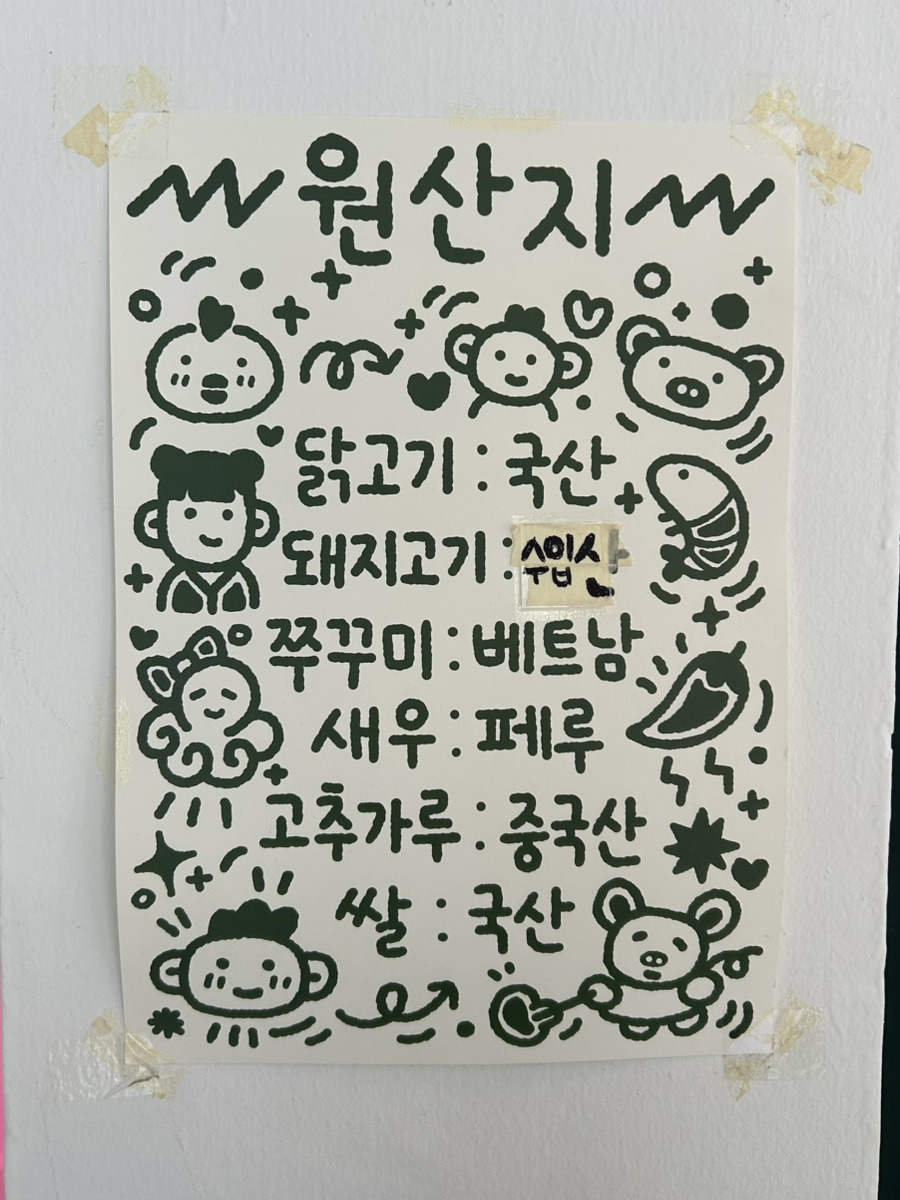 원산지
닭고기 : 국산
돼지고기 : 수입산
쭈꾸미 : 베트남
새우 : 페루
고추가루 : 중국산
쌀 : 국산